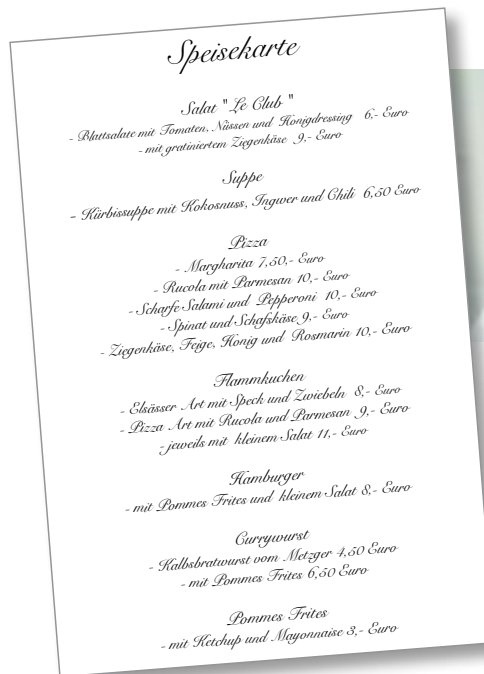 Speisekarte
Salat "Le Club"
- Blattsalate mit Tomaten, Nüssen und Honigdressing 6,- Euro
- mit gratiniertem Ziegenkäse 9,- Euro
Suppe
- Kürbissuppe mit Kokosnuss, Ingwer und Chili 6,50 Euro
Pizza
- Margharita 7,50,- Euro
- Rucola mit Parmesan 10,- Euro
- Scharfe Salami und Pepperoni 10,- Euro
- Spinat und Schafskäse 9,- Euro
- Ziegenkäse, Feige, Honig und Rosmarin 10,- Euro
Flammkuchen
- Elsässer Art mit Speck und Zwiebeln 8,- Euro
- Pizza Art mit Rucola und Parmesan 9,- Euro
- jeweils mit kleinem Salat 11,- Euro
Hamburger
- mit Pommes Frites und kleinem Salat 8,- Euro
Currywurst
- Kalbsbratwurst vom Metzger 4,50 Euro
- mit Pommes Frites 6,50 Euro
Pommes Frites
- mit Ketchup und Mayonnaise 3,- Euro